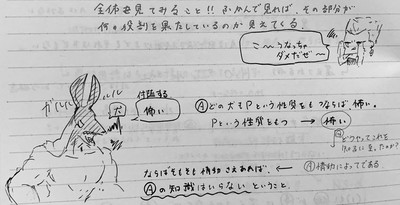 全体を見てみること!! ふかんで見れば、その部分が
何の役割を果たしているのか見えてくる
こ〜うなっちゃ
ダメだぜ〜
ガルルル
ルル
犬
付随する
怖い
Ⓐどの犬もPという性質をもつならば怖い。
Pという性質をもつ → 怖い
どうやってこれを
知るに至ったのか?
情動によってである
ならばそもそも情動さえあれば、
Ⓐの知識はいらないということ。